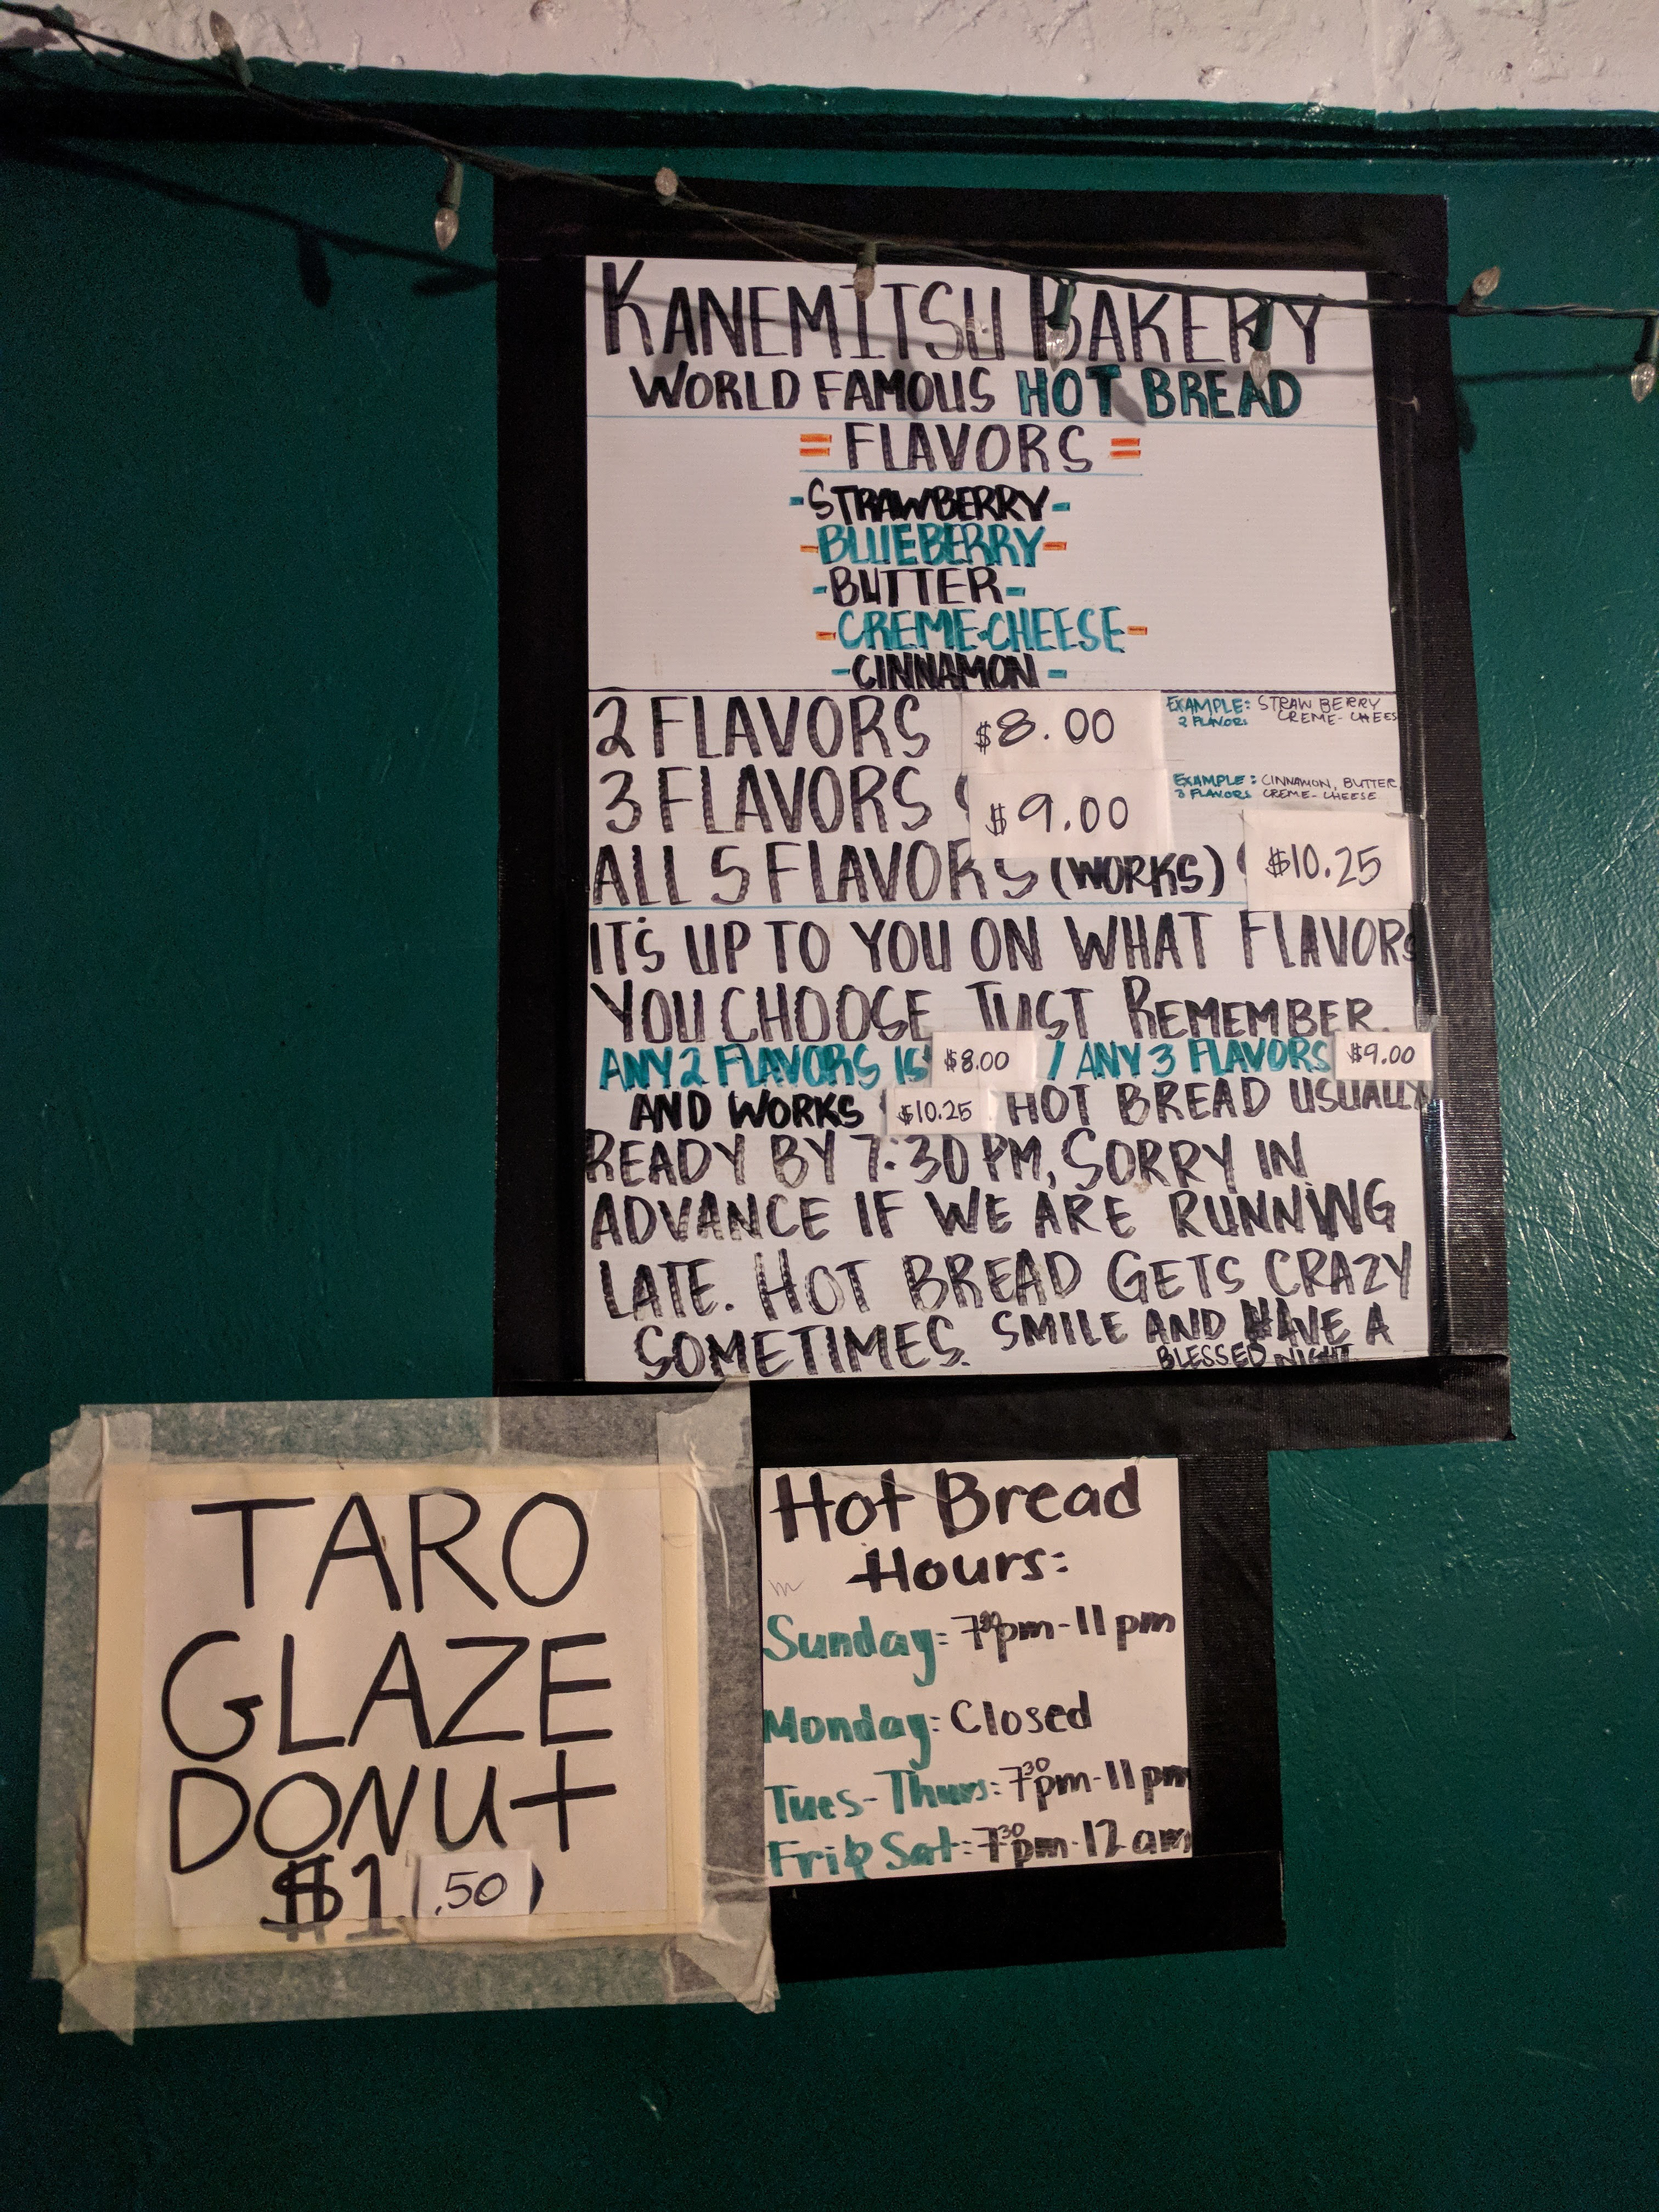 KANEMITSU BAKERY
WORLD FAMOUS HOT BREAD
= FLAVORS =
-STRAWBERRY-
-BLUEBERRY-
-BUTTER-
-CREME-CHEESE-
-CINNAMON-
2 FLAVORS $8.00
EXAMPLE: STRAWBERRY
2 FLAVORS CREME-CHEES
3 FLAVORS $9.00
EXAMPLE: CINNAMON, BUTTER,
3 FLAVORS CREME-CHEESE
ALL 5 FLAVORS (WORKS) $10.25
IT'S UP TO YOU ON WHAT FLAVORS
YOU CHOOSE JUST REMEMBER.
ANY 2 FLAVORS IS $8.00 / ANY 3 FLAVORS $9.00
AND WORKS $10.25. HOT BREAD USUALLY
READY BY 7:30 PM, SORRY IN
ADVANCE IF WE ARE RUNNING
LATE. HOT BREAD GETS CRAZY
SOMETIMES. SMILE AND HAVE A
BLESSED NIGHT
TARO
GLAZE
DONUT
$1.50
Hot Bread
Hours:
Sunday: 7:30pm-11pm
Monday: Closed
Tues-Thurs: 7:30pm-11pm
Fri & Sat: 7:30pm-12am